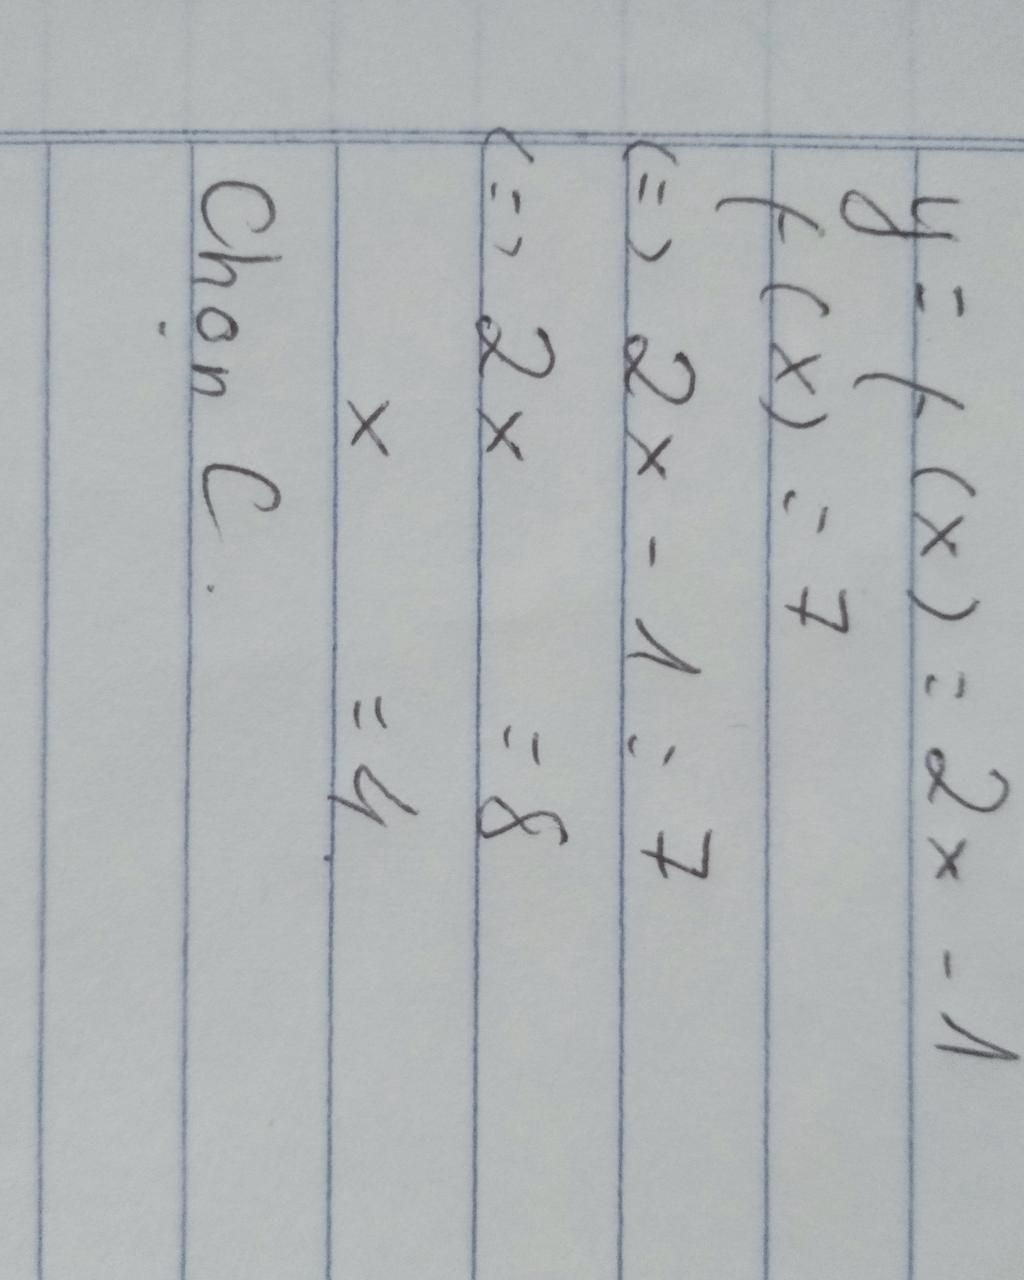 y = f(x) = 2x - 1
f(x) = 7
(=) 2x - 1 = 7
(=) 2x = 8
x = 4
Chọn C.